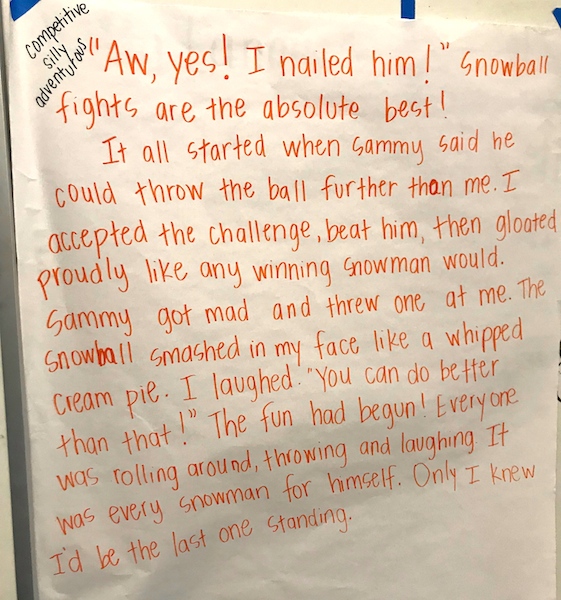 Competitive
silly
adventurous
"Aw, yes! I nailed him!" Snowball
fights are the absolute best!
It all started when Sammy said he
could throw the ball further than me. I
accepted the challenge, beat him, then gloated
proudly like any winning snowman would.
Sammy got mad and threw one at me. The
snowball smashed in my face like a whipped
cream pie. I laughed. "You can do better
than that!" The fun had begun! Everyone
was rolling around, throwing and laughing. It
was every snowman for himself. Only I knew
I'd be the last one standing.